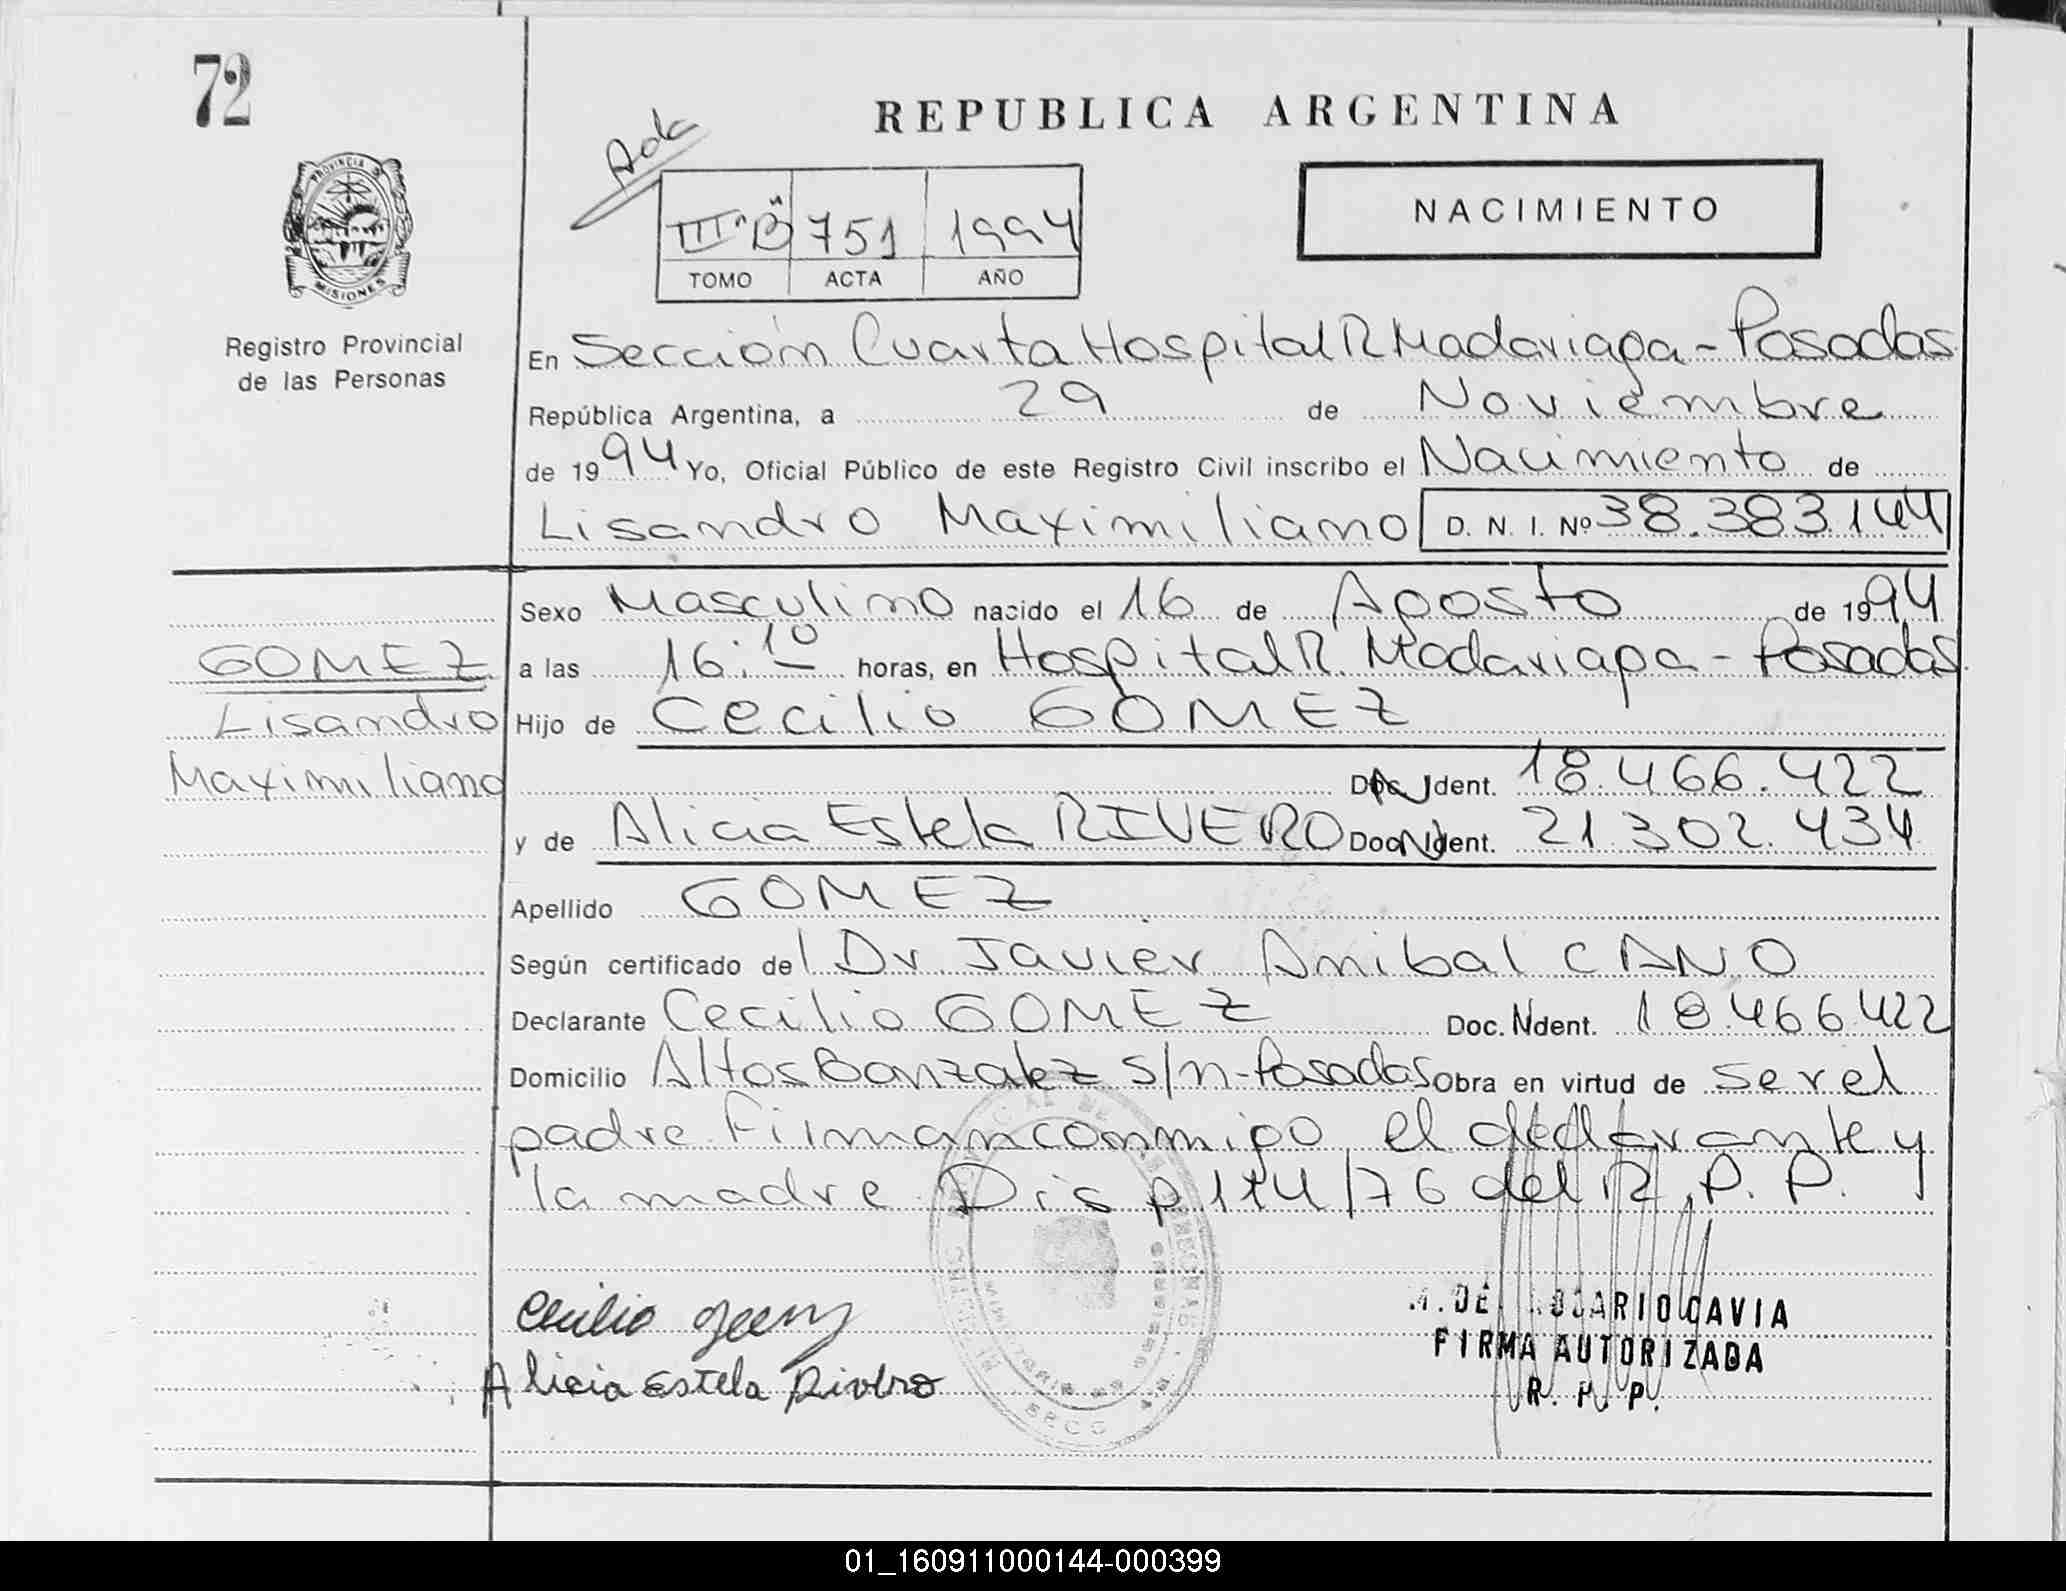 72
Ada
REPUBLICA ARGENTINA
III "B" 751 1994
TOMO ACTA AÑO
NACIMIENTO
PROVINCIA DE MISIONES
Registro Provincial
de las Personas
En Sección Cuarta Hospital R Madariaga - Posadas
República Argentina, a 29 de Noviembre
de 1994 Yo, Oficial Público de este Registro Civil inscribo el Nacimiento de
Lisandro Maximiliano D. N. I. Nº 38.383.144
Sexo Masculino nacido el 16 de Agosto de 1994
GOMEZ
a las 16:10 horas, en Hospital R. Madariaga - Posadas
Lisandro
Hijo de Cecilio GOMEZ
Maximiliano
Doc. Ident. 18.466.422
y de Alicia Estela RIVERO Doc. Ident. 21.302.434
Apellido GOMEZ
Según certificado del Dr Javier Anibal CANO
Declarante Cecilio GOMEZ Doc. Ident. 18.466.422
Domicilio Altos Gonzalez s/n - Posadas Obra en virtud de ser el
padre Firman conmigo el declarante y
la madre Disp 114/76 del R.P.P.
Cecilio
Alicia Estela Rivero
CAVIA
FIRMA AUTORIZADA
R. P. P.
01_160911000144-000399